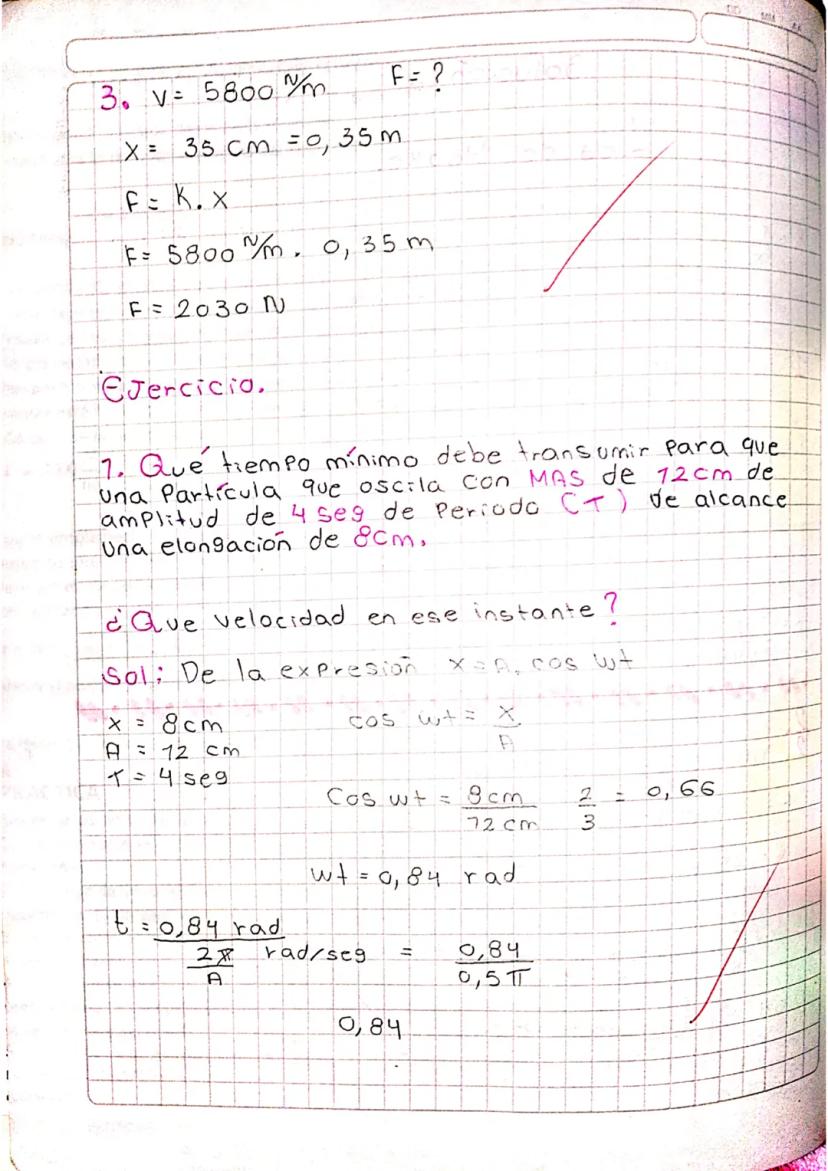 3. V= 5800 N/m F=?
X= 35 cm =0,35m
F= K.X
F= 5800 N/m. 0,35 m
F= 2030 N
Ejercicio.
1. Qué tiempo mínimo debe transumir Para que
una Partícula que oscila con MAS de 12cm de
amplitud de 4 seg de Periodo (T) de alcance
una elongación de 8cm.
¿Que velocidad en ese instante?
Sol: De la expresión X=A. cos wt
X = 8cm cos wt = X/A
A = 12 cm
T= 4 seg
Cos wt = 8cm/12cm 2/3 = 0,66
wt = 0,84 rad
t = 0,84 rad / 2π/A rad/seg = 0,84/0,5π
0,84